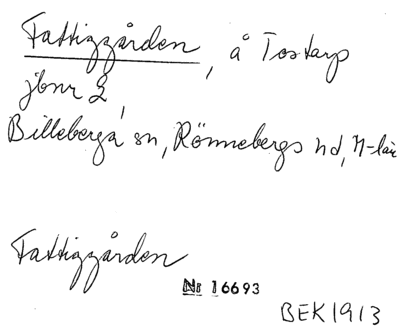 Fattiggården, å Tostarp
jbnr 2,
Billeberga sn, Rönnebergs hd, M-län
Fattiggården
Nr 16693
BEK 1913